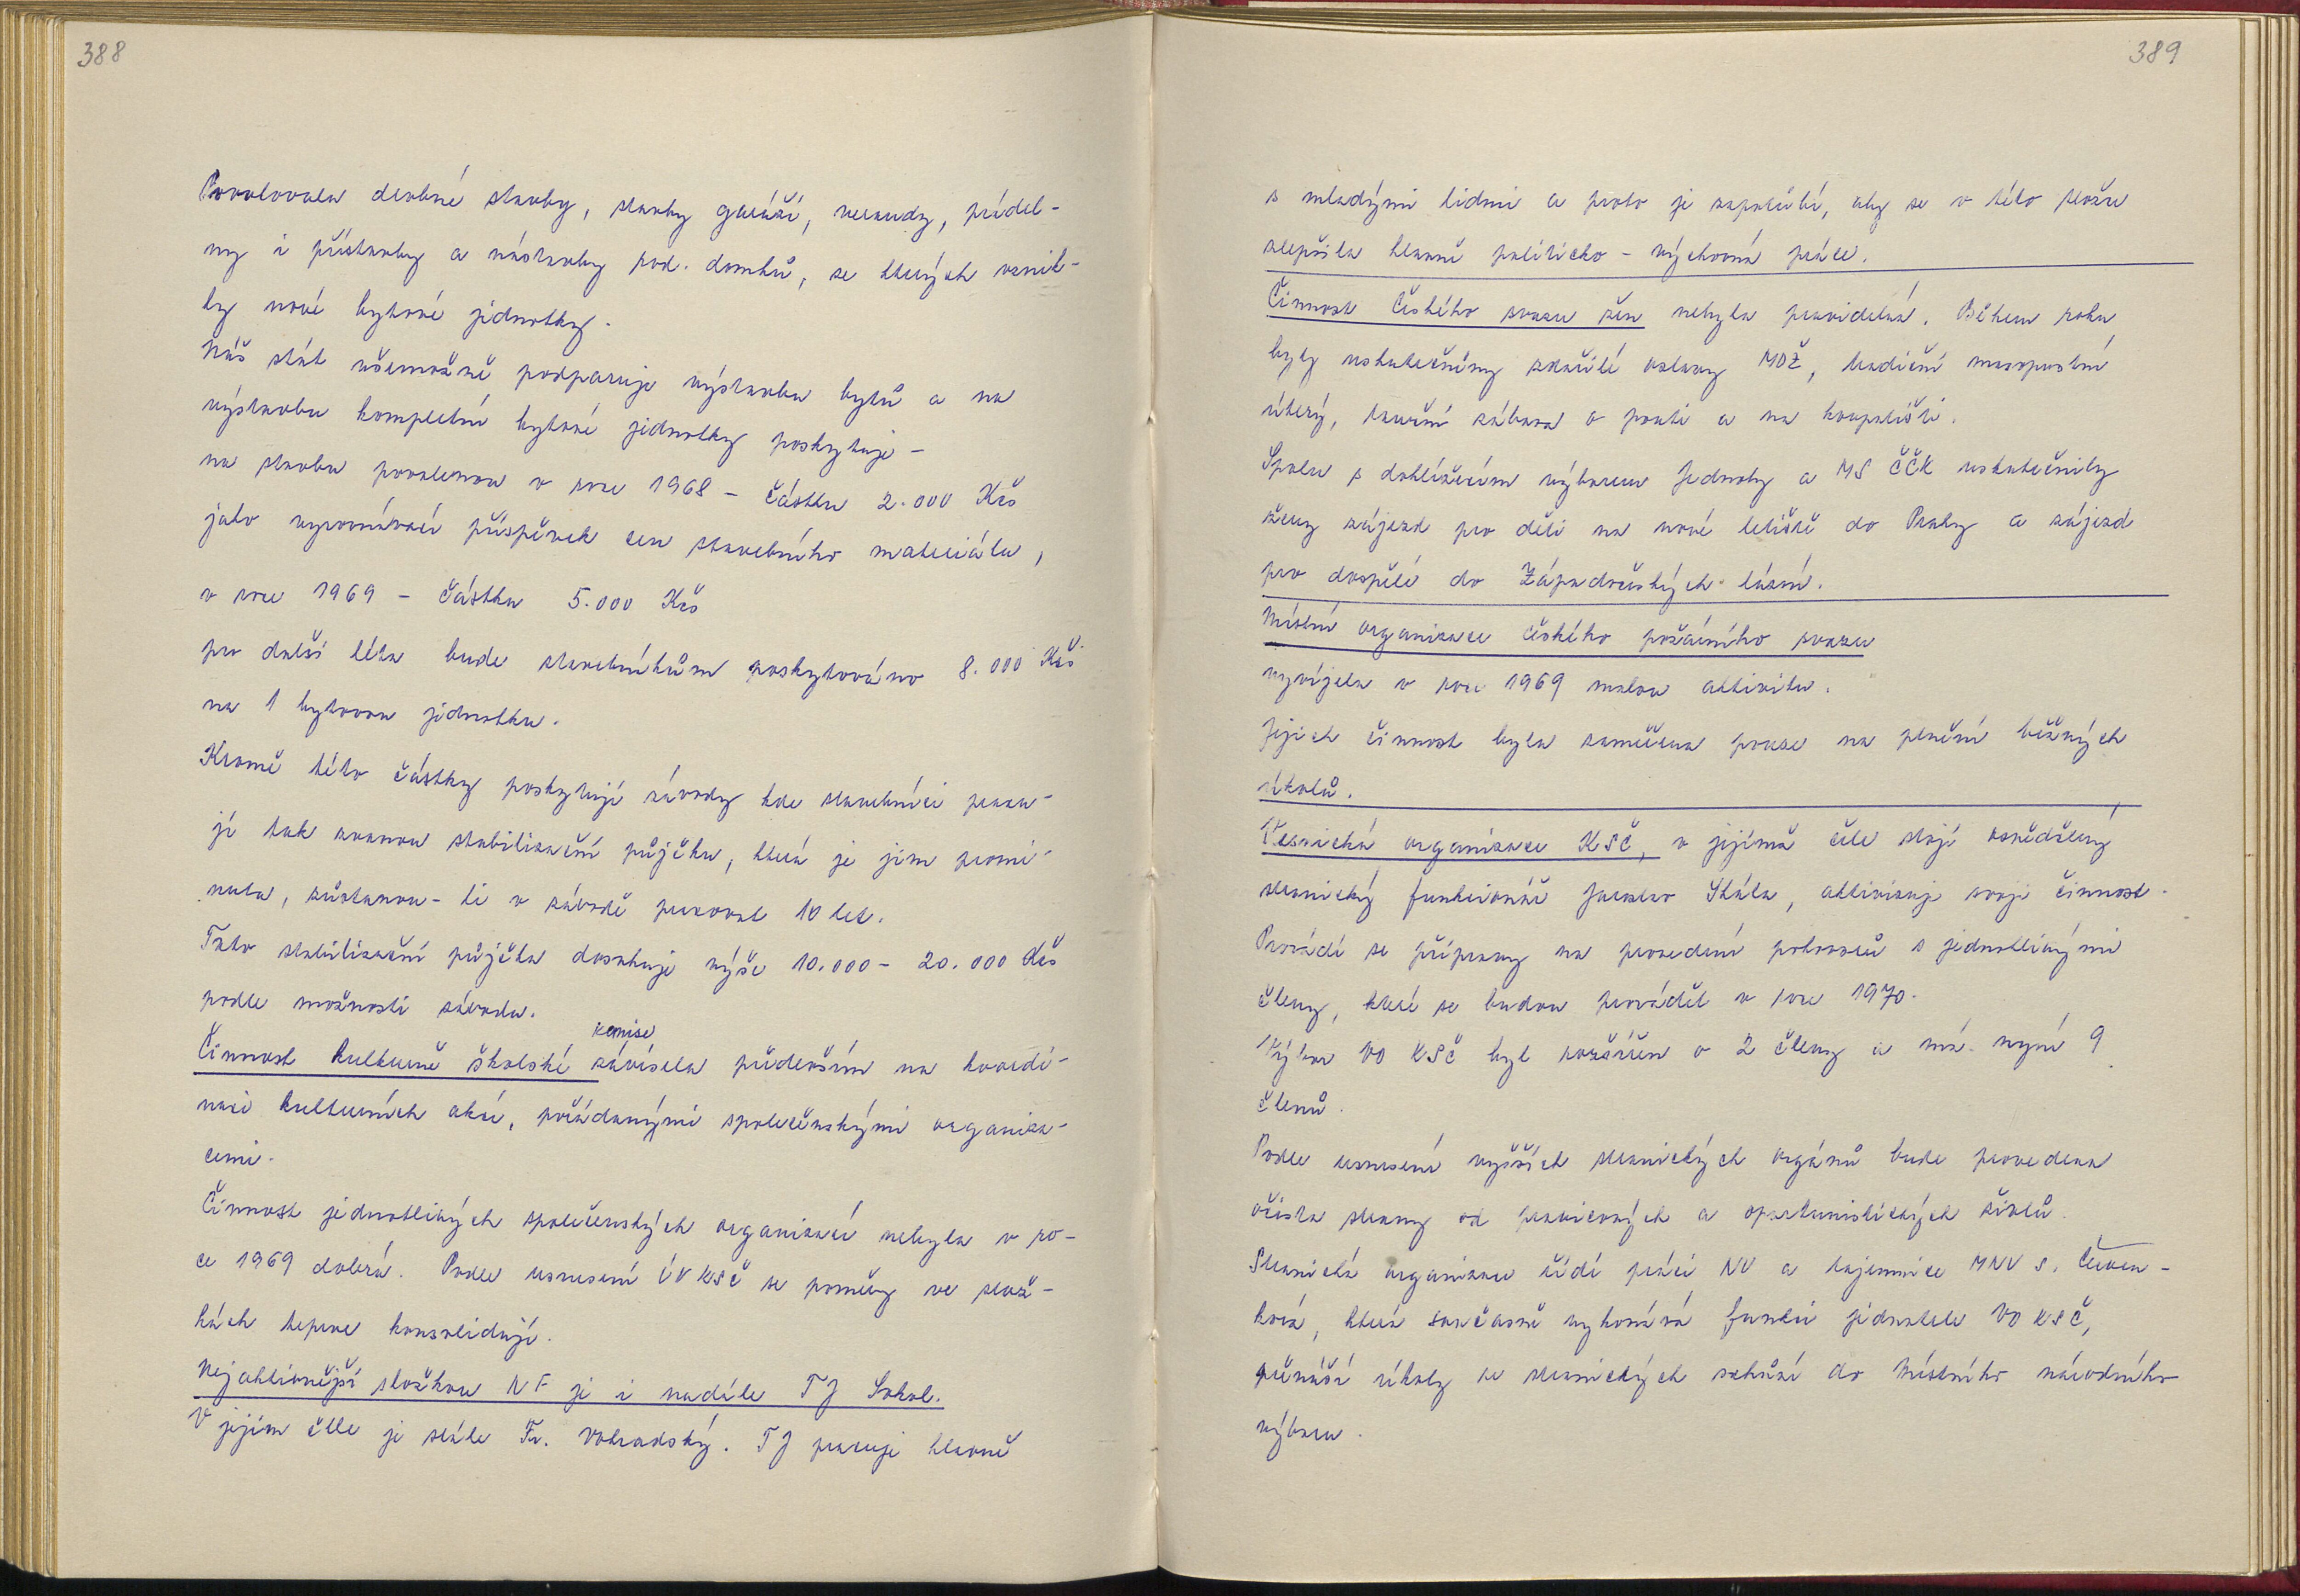 388
Povolovala drobné stavby, stavby garáží, verandy, prádel-
ny i přístavby a nástavby rod. domků, ze kterých vznik-
ly nové bytové jednotky.
Náš stát všemožně podporuje výstavbu bytů a na
výstavbu kompletní bytové jednotky poskytuje -
na stavbu povolenou v roce 1968 - částku 2.000 Kčs
jako vyrovnávací příspěvek cen stavebního materiálu,
v roce 1969 - částku 5.000 Kčs
pro další léta bude stavebníkům poskytováno 8.000 Kčs
na 1 bytovou jednotku.
Kromě této částky poskytují závody kde stavebníci pracu-
jí tak zvanou stabilizační půjčku, která je jim promi-
nuta, zůstanou-li v závodě pracovat 10 let.
Tato stabilizační půjčka dosahuje výše 10.000 - 20.000 Kčs
podle možností závodu.
komise
Činnost kulturně školské závisela především na koordi-
naci kulturních akcí, pořádanými společenskými organiza-
cemi.
Činnost jednotlivých společenských organizací nebyla v ro-
ce 1969 dobrá. Podle usnesení ÚV KSČ se poměry ve slož-
kách teprve konsolidují.
Nejaktivnější složkou NF je i nadále TJ Sokol.
V jejím čele je stále Fr. Vohradský. TJ pracuje hlavně
389
s mladými lidmi a proto je zapotřebí, aby se v této složce
zlepšila hlavně politicko - výchovná práce.
Činnost Českého svazu žen nebyla pravidelná. Během roku
byly uskutečněny zdařilé oslavy MDŽ, tradiční masopustní
úterý, taneční zábava o pouti a na koupališti.
Spolu s dohlížecím výborem Jednoty a MS ČČK uskutečnily
ženy zájezd pro děti na nové letiště do Prahy a zájezd
pro dospělé do Západočeských lázní.
Místní organizace českého požárního svazu
vyvíjela v roce 1969 malou aktivitu.
Jejich činnost byla zaměřena pouze na plnění běžných
úkolů.
Vesnická organizace KSČ, v jejímž čele stojí osvědčený
stranický funkcionář Jaroslav Skála, aktivizuje svoji činnost.
Provádí se přípravy na provedení pohovorů s jednotlivými
členy, které se budou provádět v roce 1970.
Výbor VO KSČ byl rozšířen o 2 členy a má nyní 9
členů.
Podle usnesení vyšších stranických orgánů bude provedena
očista strany od pravicových a oportunistických živlů.
Stranická organizace řídí práci NV a tajemnice MNV s. Červen-
ková, která současně vykonává funkci jednatele VO KSČ,
přenáší úkoly ze stranických schůzí do Místního národního
výboru.